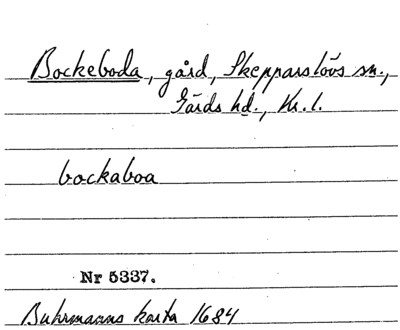 Bockeboda, gård, Skepparslövs sn.,
Gärds hd., Kr. l.
bockaboa
Nr 5337.
Buhrmanns karta 1684